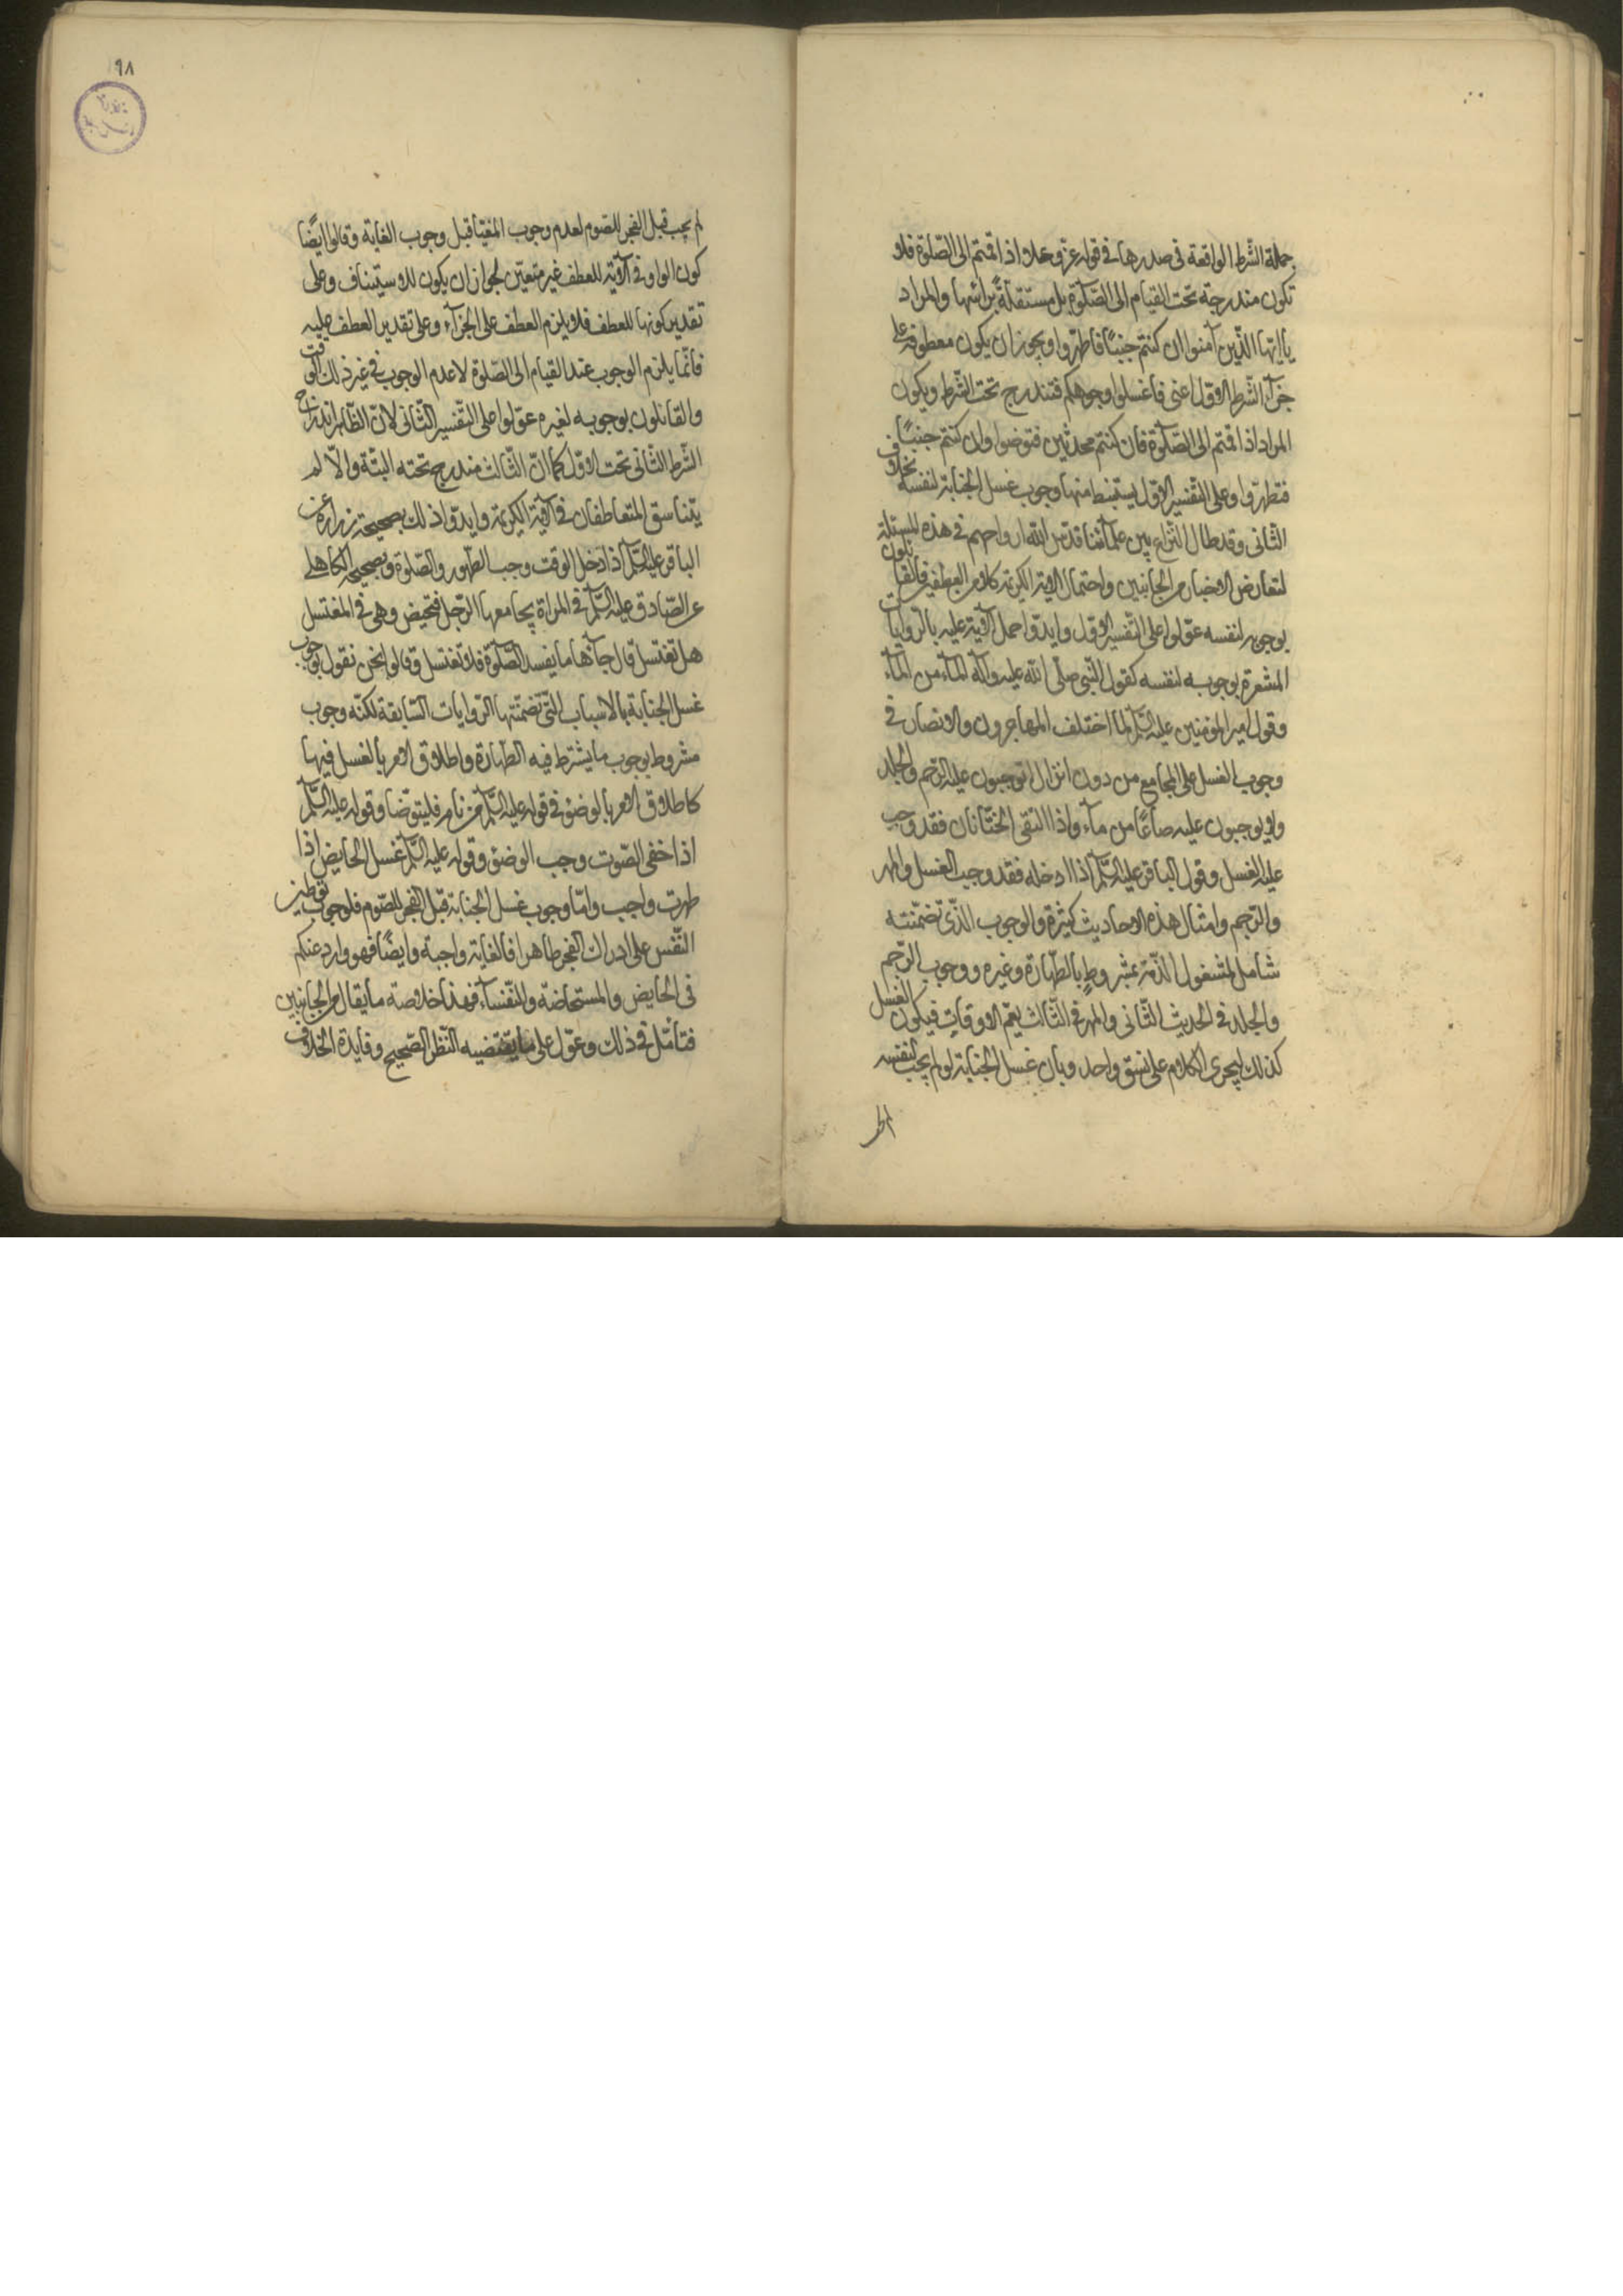 جملة الشّرط الواقعة فى صدرها فى قوله عزّ وعلا اذا قمتم الى الصّلوة فلا
تكون مندرجة تحت القيام الى الصّلوة بل مستقلةً برائسها والمراد
يا ايّها الذّين آمنوا ان كنتم جنبًا فاطهّروا ويجوز ان يكون معطوفة على
جزآء الشّرط الاوّل اعنى فاغسلوا وجوهكم فتندرج تحت الشّرط ويكون
المراد اذا قمتم الى الصّلوة فان كنتم محدثين فتوضوا وان كنتم جنبًا
فتطهّروا وعلى التّفسير الاوّل يستنبط منها وجوب غسل الجنابة لنفسه بخلاف
الثّانى وقد طال النّزاع بين علمآئنا قدّس الله ارواحهم فى هذه المسئلة
لتعارض الاخبار من الجانبين واحتمال الاية الكريمة كلا من العطفين فالقائلون
بوجوبه لنفسه عوّلوا على التّفسير الاوّل وايدّوا حمل الآية عليه بالرّوايات
المشعرة بوجوبه لنفسه كقول النّبى صلّى الله عليه وآله المآء من المآء
وقول امير المؤمنين عليه السّلم لما اختلف المهاجرون والانصار فى
وجوب الغسل على المجامع من دون انزال اتوجبون عليه الرّجم والجلد
ولا يوجبون عليه صاعًا من مآء واذا التقى الختانان فقد وجب
عليه الغسل وقول الباقر عليه السّلم اذا ادخله فقد وجب الغسل والمهر
والرّجم وامثال هذه الاحاديث كثيرة والوجوب الذّى تضمّنته
شامل لمشغول الذّمة بمشروطٍ بالطّهارة وغيره ووجوب الرّجم
والجلد فى الحديث الثّانى والمهر فى الثّالث يعمّ الاوقات فيكون الغسل
كذلك ليجرى الكلام على نسق واحد وبان غسل الجنابة لو لم يجب لنفسه
٩٨
لم يجب قبل الفجر للصّوم لعدم وجوب المغيّا قبل وجوب الغاية وقالوا ايضًا
كون الواو فى الآية للعطف غير متعيّن لجواز ان يكون للاستيناف وعلى
تقدير كونها للعطف فلا يلزم العطف على الجزآء وعلى تقدير العطف عليه
فانّما يلزم الوجوب عند القيام الى الصّلوة لا عدم الوجوب فى غير ذلك الوقت
والقائلون بوجوبه لغيره عوّلوا على التّفسير الثّانى لانّ الظّاهر اندراج
الشّرط الثّانى تحت الاوّل كما انّ الثّالث مندرج تحته البتّة والّا لم
يتناسق المتعاطفان فى الآية الكريمة وايدّوا ذلك بصحيحة زرارة عن
الباقر عليه السّلم اذا دخل الوقت وجب الطّهور والصّلوة وبصحيحة الكاهلى
عن الصّادق عليه السّلم فى المراة يجامعها الرّجل فتحيض وهى فى المغتسل
هل تغتسل قال جآءها ما يفسد الصّلوة فلا تغتسل وقالوا نحن نقول بوجوب
غسل الجنابة بالاسباب التّى تضمّنتها الرّوايات السّابقة لكنّه وجوب
مشروط بوجوب ما يشترط فيه الطّهارة واطلاق الامر بالغسل فيها
كاطلاق الامر بالوضؤ فى قوله عليه السّلم من نام فليتوضّا وقوله عليه السّلم
اذا خفى الصّوت وجب الوضؤ وقوله عليه السّلم غسل الحايض اذا
طهرت واجب وامّا وجوب غسل الجنابة قبل الفجر للصّوم فلوجوب توطين
النّفس على ادراك الفجر طاهرا فالغاية واجبة وايضًا فهو وارد عنكم
فى الحايض والمستحاضة والنّفسآء فهذا خلاصة ما يقال من الجانبين
فتأمّل فى ذلك وعوّل على ما يقتضيه النّظر الصّحيح وفايدة الخلاف